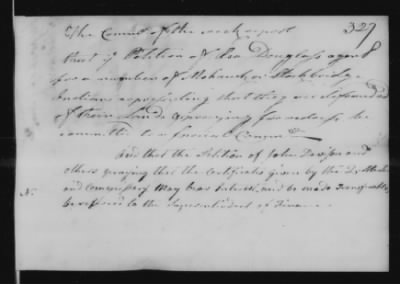 329
The Comee of the week report
that ye Petition of Asa Douglass agent
for a number of Mohiccan Stockbridge
Indians representing that they are defrauded
of their Lands & praying for redress be
committed to a special Comee
And that the Petition of John Davison and
others praying that the Certificates given by the Dy
and Commissary may bear Interest, and be made Transferable,
be referred to the Superintendent of Finance.
N.